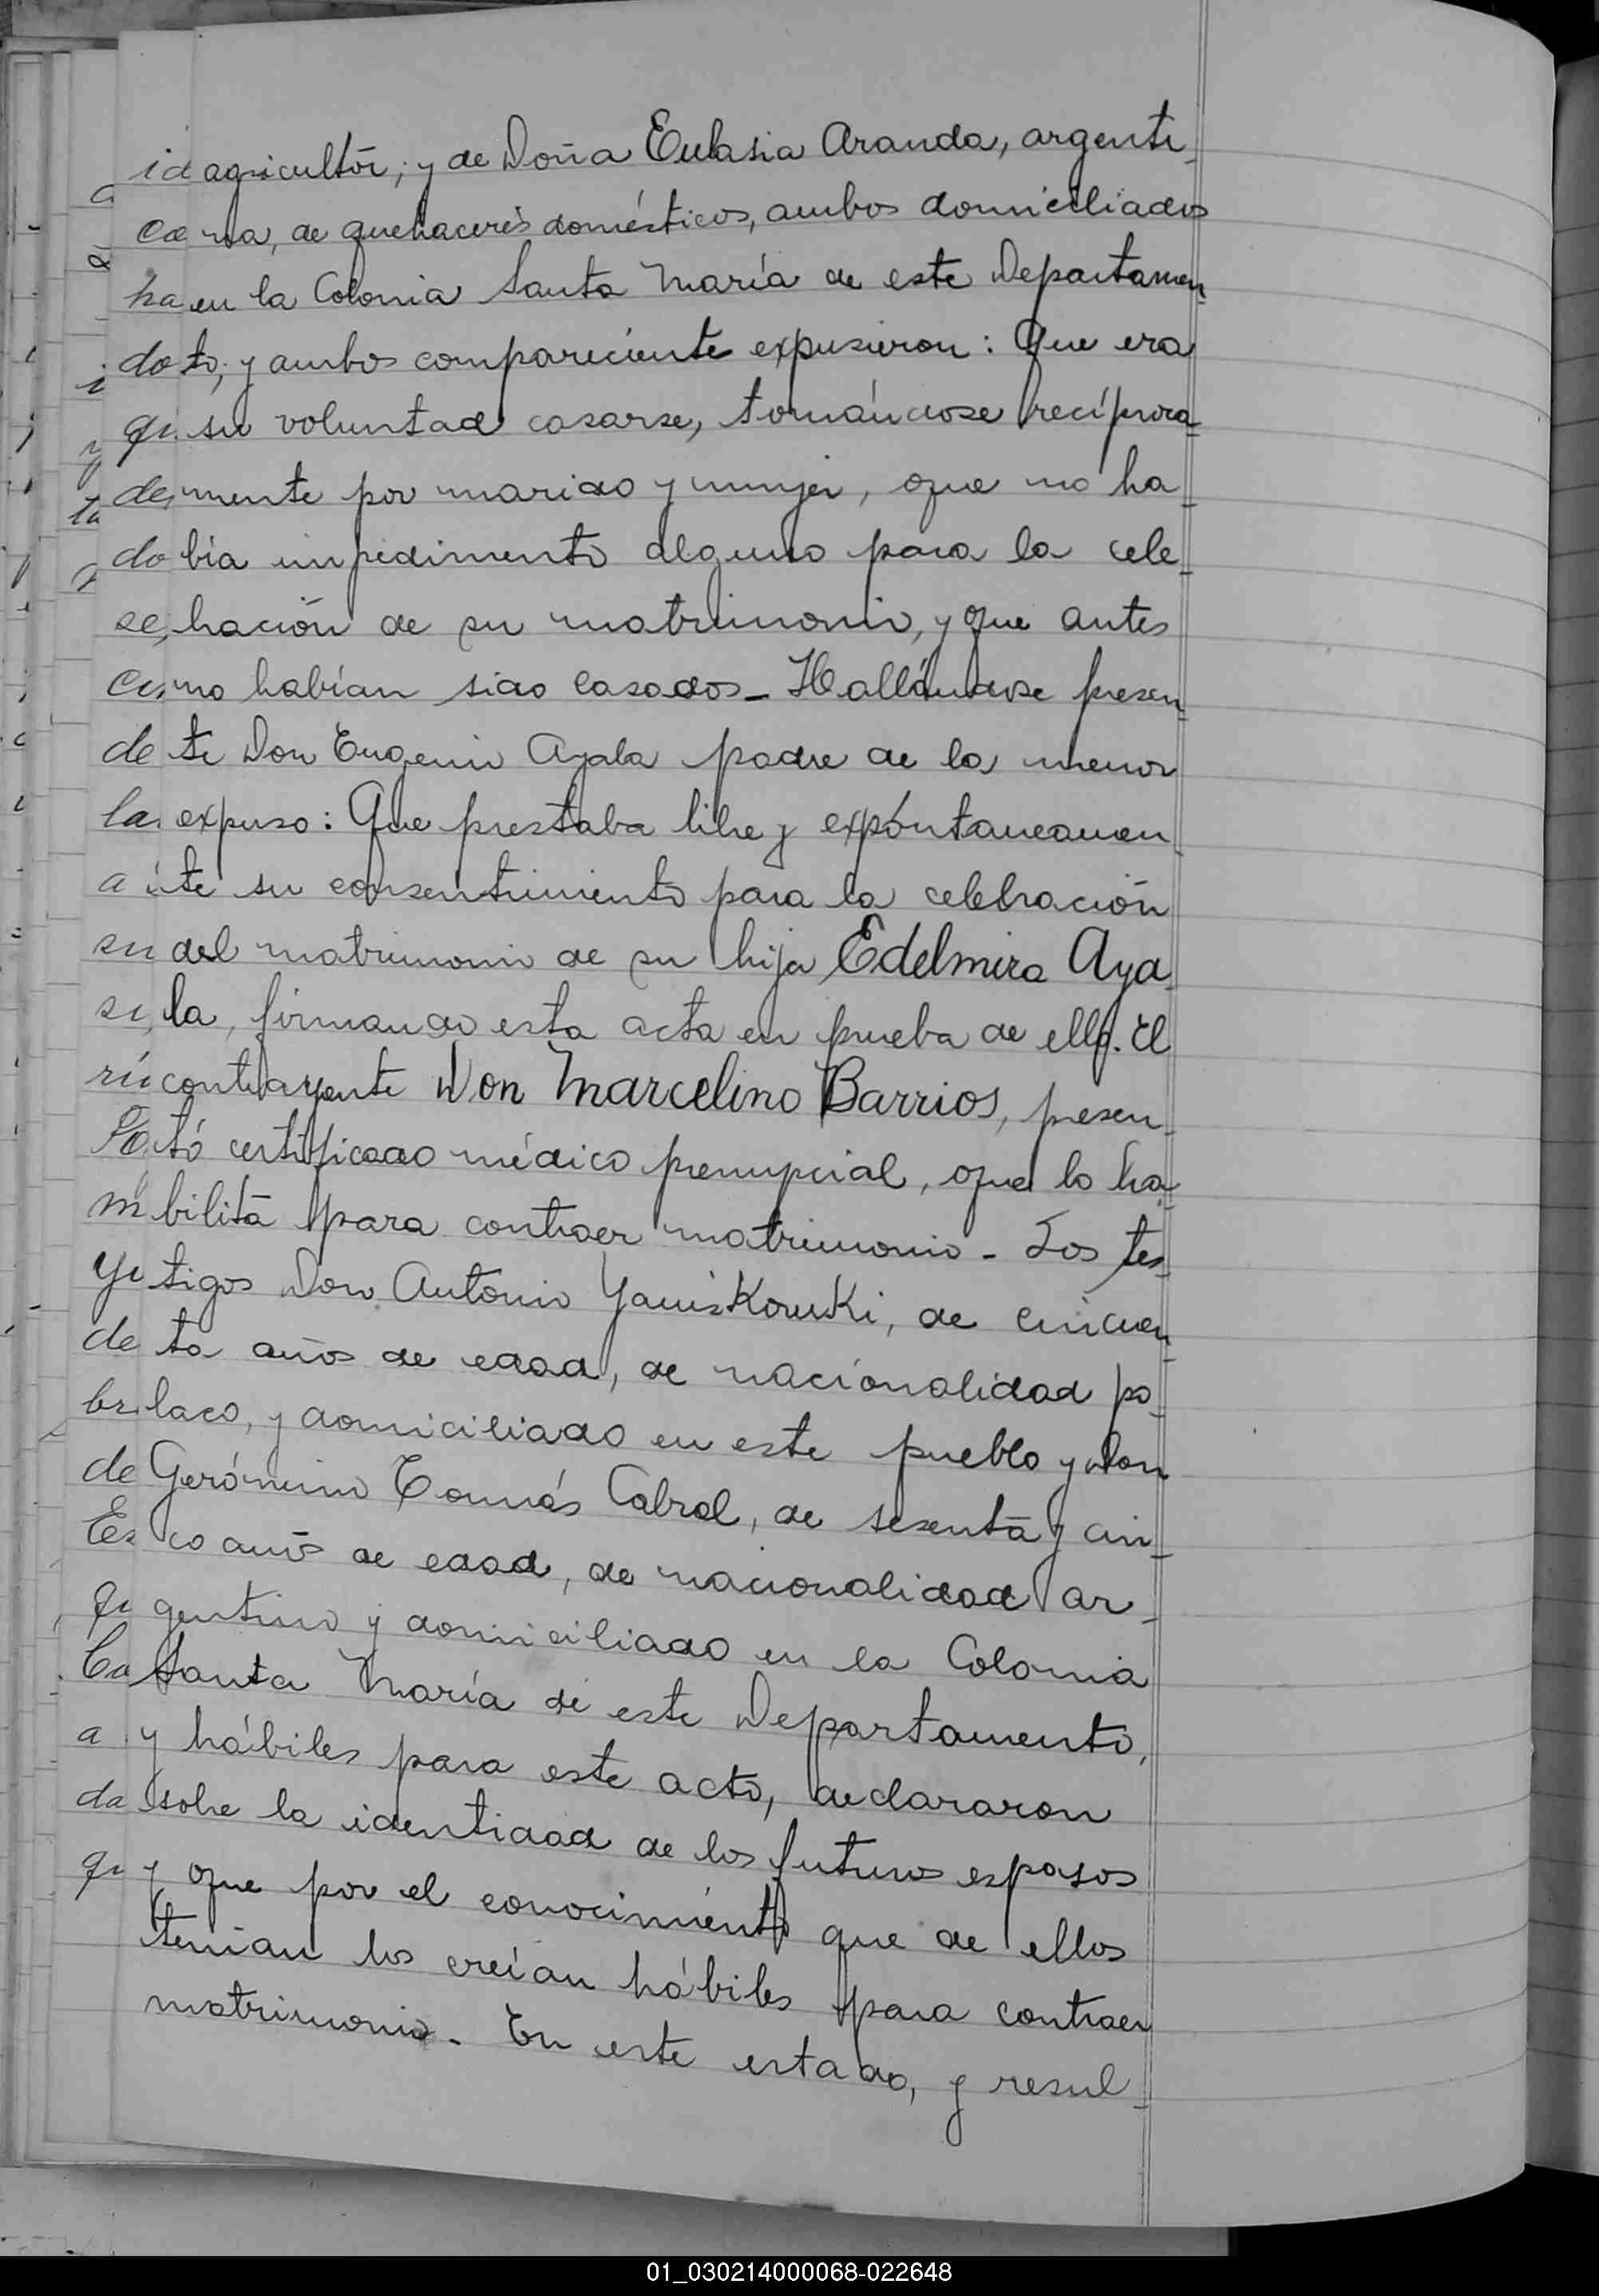 agricultor; y de Doña Eulasia Aranda, argenti-
na, de quehaceres domésticos, ambos domiciliados
en la Colonia Santa María de este Departamen-
to; y ambos compareciente expusieron: Que era
su voluntad casarse, tomándose recíproca-
mente por marido y mujer, que no ha-
bía impedimento alguno para la cele-
bración de su matrimonio, y que antes
no habían sido casados_ Hallándose presen-
te Don Eugenio Ayala padre de la menor
expuso: Que prestaba libre y expóntaneamen-
te su consentimiento para la celebración
del matrimonio de su hija Edelmira Aya-
la, firmando esta acta en prueba de ello. El
contrayente Don Marcelino Barrios, presen-
tó certificado médico prenupcial, que lo ha-
bilita para contraer matrimonio - Los tes-
tigos Don Antonio, de cincuen-
ta años de edad, de nacionalidad po-
laco, y domiciliado en este pueblo y Don
Gerónimo Tomás Cabral, de sesenta y cin-
co años de edad, de nacionalidad ar-
gentino y domiciliado en la Colonia
Santa María de este Departamento,
y hábiles para este acto, declararon
sobre la identidad de los futuros esposos
y que por el conocimiento que de ellos
tenían los creían hábiles para contraer
matrimonio. En este estado, y resul-
01_030214000068-022648